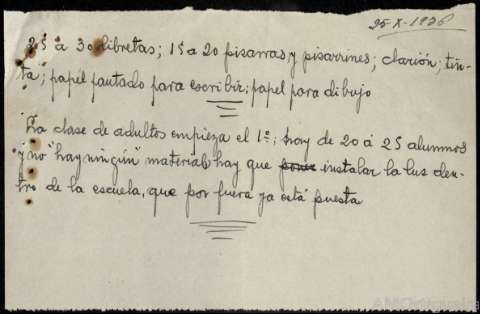 25-X-1936
25 á 30 libretas; 15 a 20 pisarras y pisarrines; clarión; tin-
ta; papel pautado para escribir; papel para dibujo
La clase de adultos empieza el 1º; hay de 20 á 25 alumnos
y no hay ningún material; hay que poner instalar la lus den-
tro de la escuela, que por fuera ya está puesta